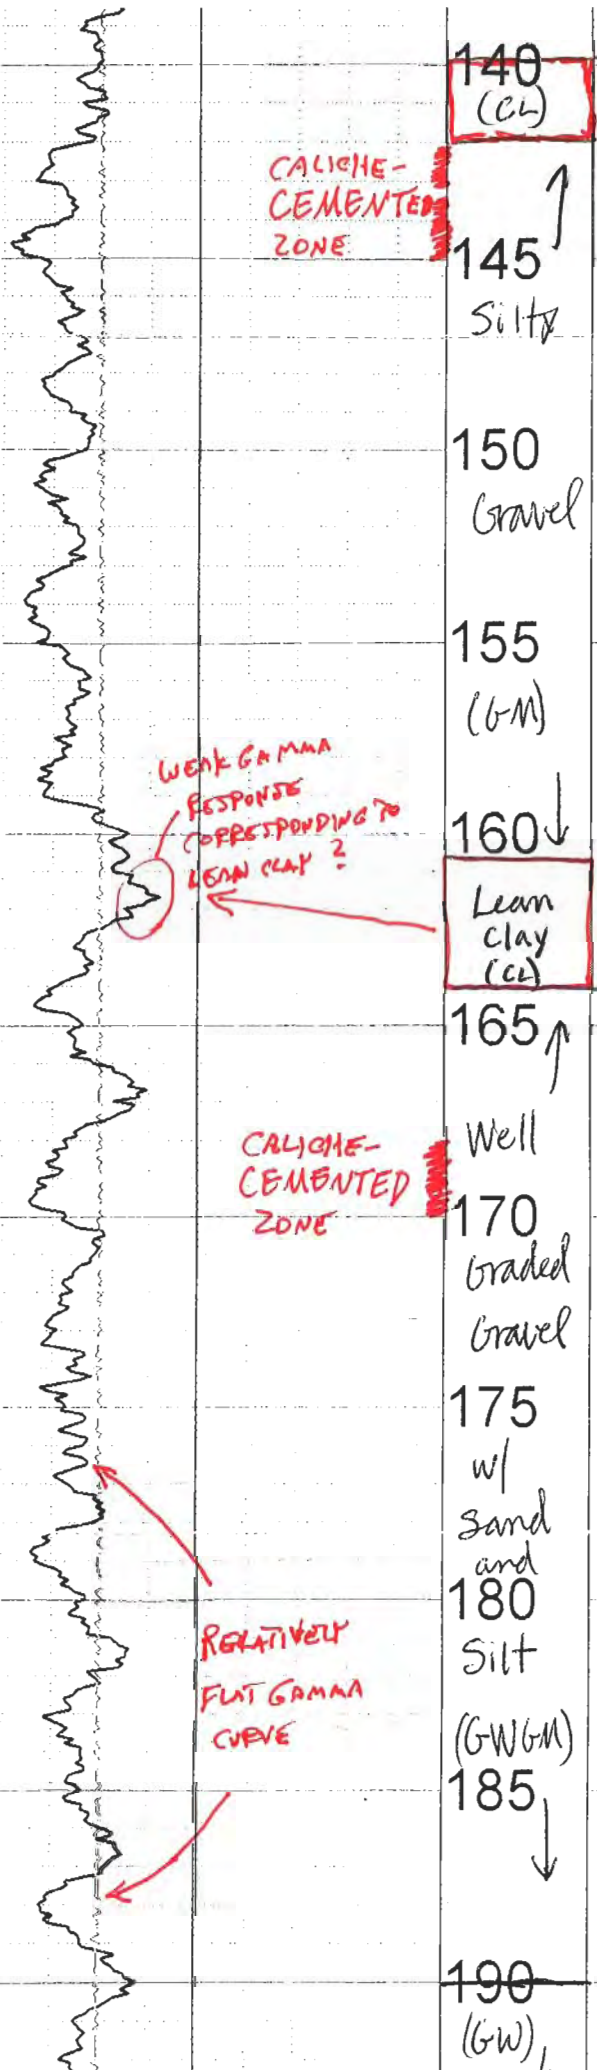 140
(CL)
CALICHE-
CEMENTED
ZONE
145
Silty
150
Gravel
155
(GM)
WEAK GAMMA
RESPONSE
CORRESPONDING TO
LEAN CLAY ?
160
Lean
clay
(CL)
165
Well
CALICHE-
CEMENTED
ZONE
170
Graded
Gravel
175
w/
Sand
and
180
RELATIVELY
FLAT GAMMA
CURVE
Silt
(GWGM)
185
190
(GW),